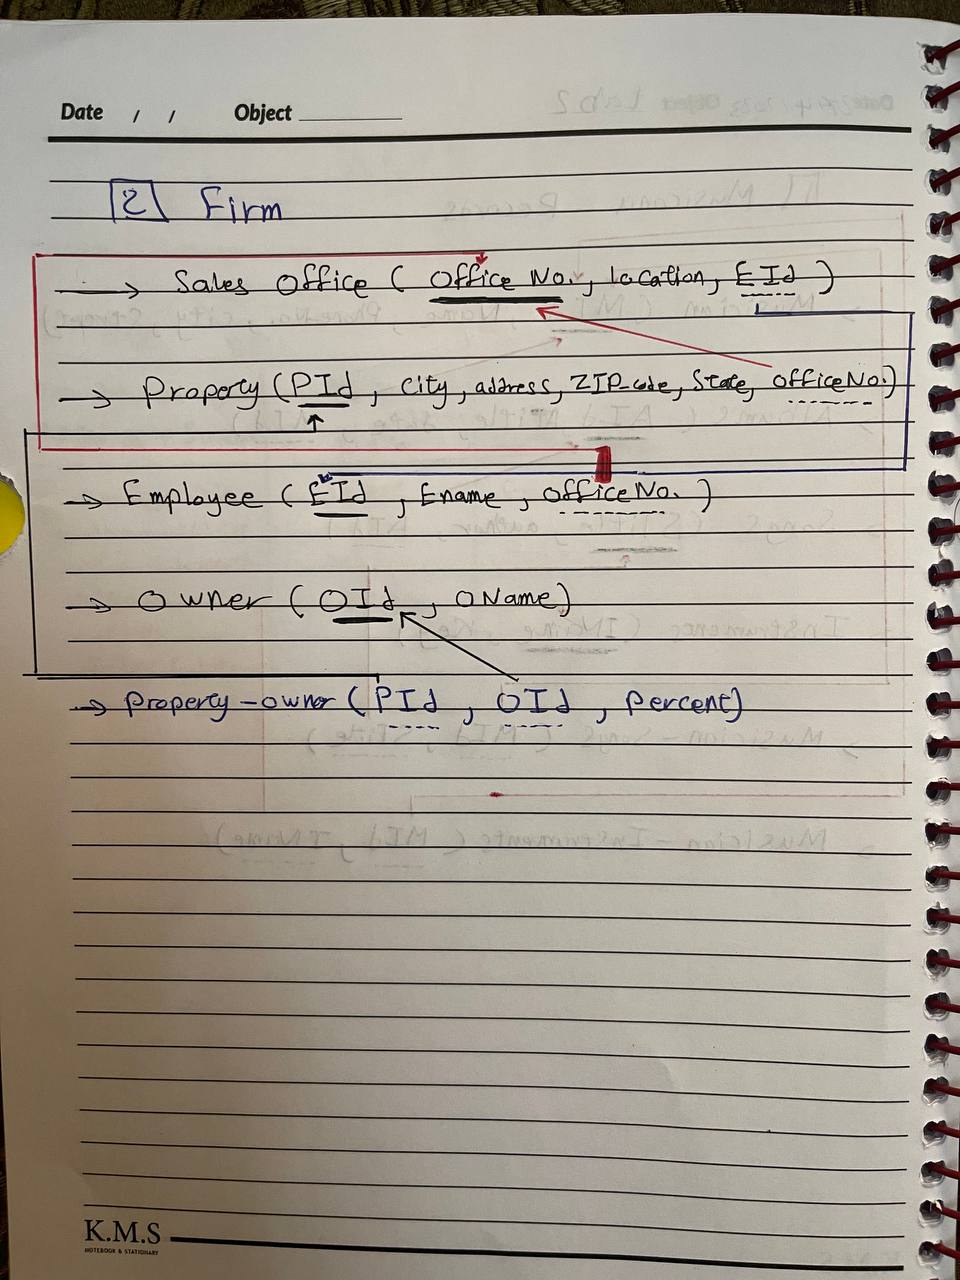 Date / / Object
2 Firm
Sales Office ( Office No., location, EId )
Property (PId, City, address, ZIP-code, State, officeNo.)
Employee ( EId, Ename, officeNo. )
Owner ( OId, OName)
Property-owner (PId, OId, Percent)
K.M.S
NOTEBOOK & STATIONARY